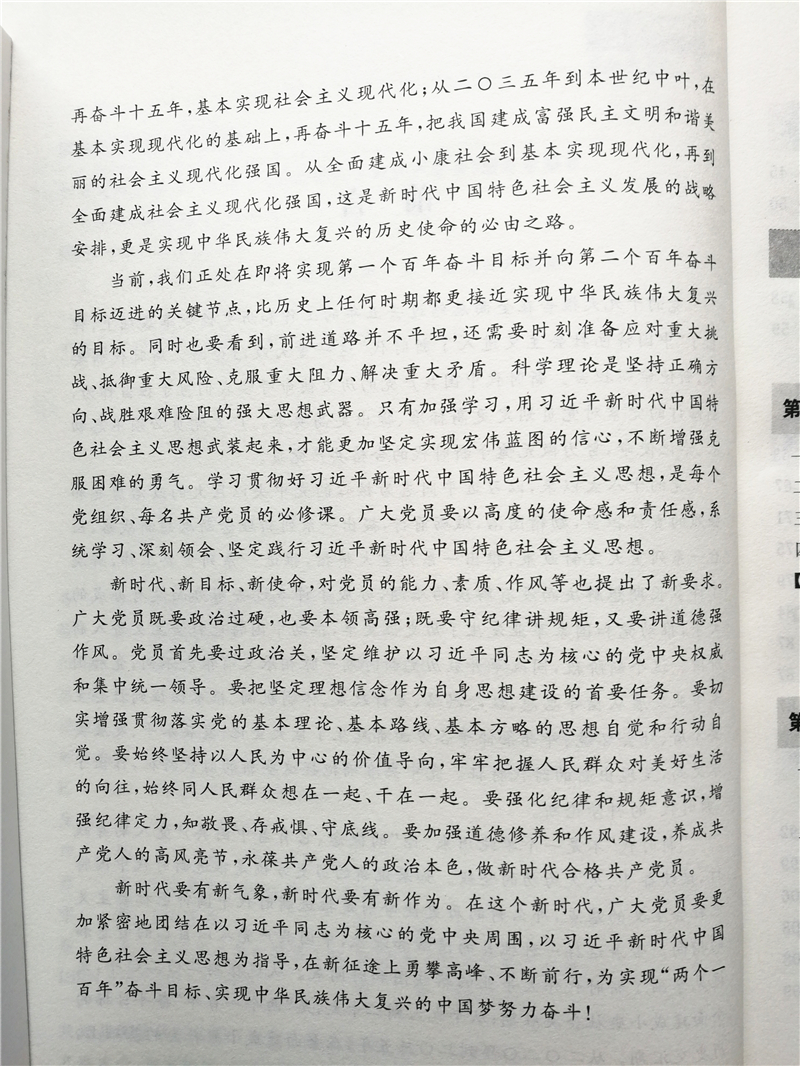 再奋斗十五年，基本实现社会主义现代化；从二〇三五年到本世纪中叶，在
基本实现现代化的基础上，再奋斗十五年，把我国建成富强民主文明和谐美
丽的社会主义现代化强国。从全面建成小康社会到基本实现现代化，再到
全面建成社会主义现代化强国，这是新时代中国特色社会主义发展的战略
安排，更是实现中华民族伟大复兴的历史使命的必由之路。
当前，我们正处在即将实现第一个百年奋斗目标并向第二个百年奋斗
目标迈进的关键节点，比历史上任何时期都更接近实现中华民族伟大复兴
的目标。同时也要看到，前进道路并不平坦，还需要时刻准备应对重大挑
战、抵御重大风险、克服重大阻力、解决重大矛盾。科学理论是坚持正确方
向、战胜艰难险阻的强大思想武器。只有加强学习，用习近平新时代中国特
色社会主义思想武装起来，才能更加坚定实现宏伟蓝图的信心，不断增强克
服困难的勇气。学习贯彻好习近平新时代中国特色社会主义思想，是每个
党组织、每名共产党员的必修课。广大党员要以高度的使命感和责任感，系
统学习、深刻领会、坚定践行习近平新时代中国特色社会主义思想。
新时代、新目标、新使命，对党员的能力、素质、作风等也提出了新要求。
广大党员既要政治过硬，也要本领高强；既要守纪律讲规矩，又要讲道德强
作风。党员首先要过政治关，坚定维护以习近平同志为核心的党中央权威
和集中统一领导。要把坚定理想信念作为自身思想建设的首要任务。要切
实增强贯彻落实党的基本理论、基本路线、基本方略的思想自觉和行动自
觉。要始终坚持以人民为中心的价值导向，牢牢把握人民群众对美好生活
的向往，始终同人民群众想在一起、干在一起。要强化纪律和规矩意识，增
强纪律定力，知敬畏、存戒惧、守底线。要加强道德修养和作风建设，养成共
产党人的高风亮节，永葆共产党人的政治本色，做新时代合格共产党员。
新时代要有新气象，新时代要有新作为。在这个新时代，广大党员要更
加紧密地团结在以习近平同志为核心的党中央周围，以习近平新时代中国
特色社会主义思想为指导，在新征途上勇攀高峰、不断前行，为实现“两个一
百年”奋斗目标、实现中华民族伟大复兴的中国梦努力奋斗！
第
一
二
三
四
第